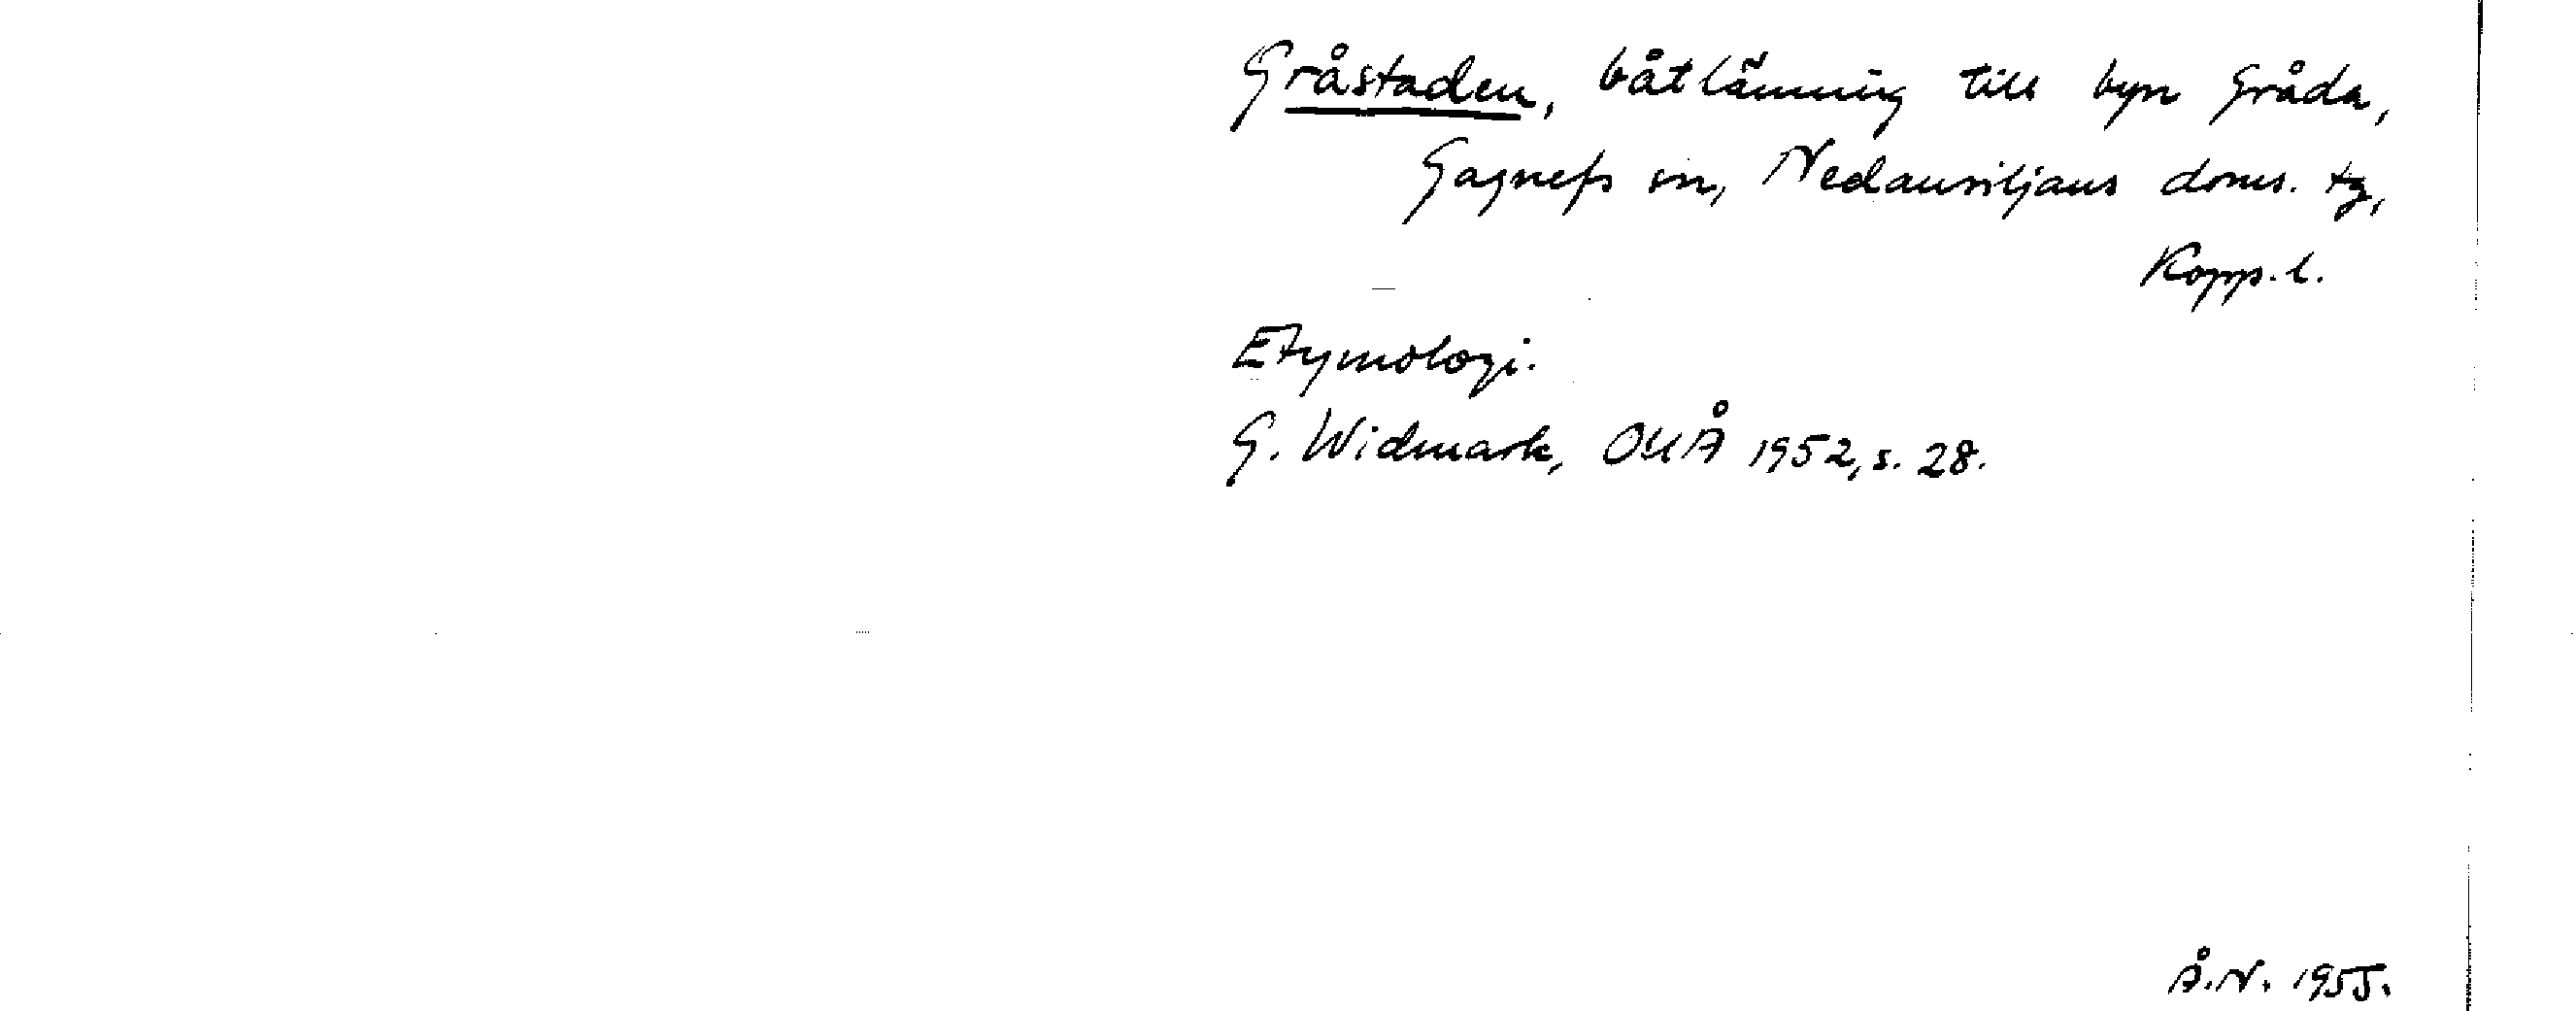 Gråstaden, båtlänning till byn Gråda,
Gagnefs sn, Nedansiljans doms. tg,
Kopp. l.
Etymologi.
G. Widmark, OUÅ 1952, s. 28.
Å.N. 1955.